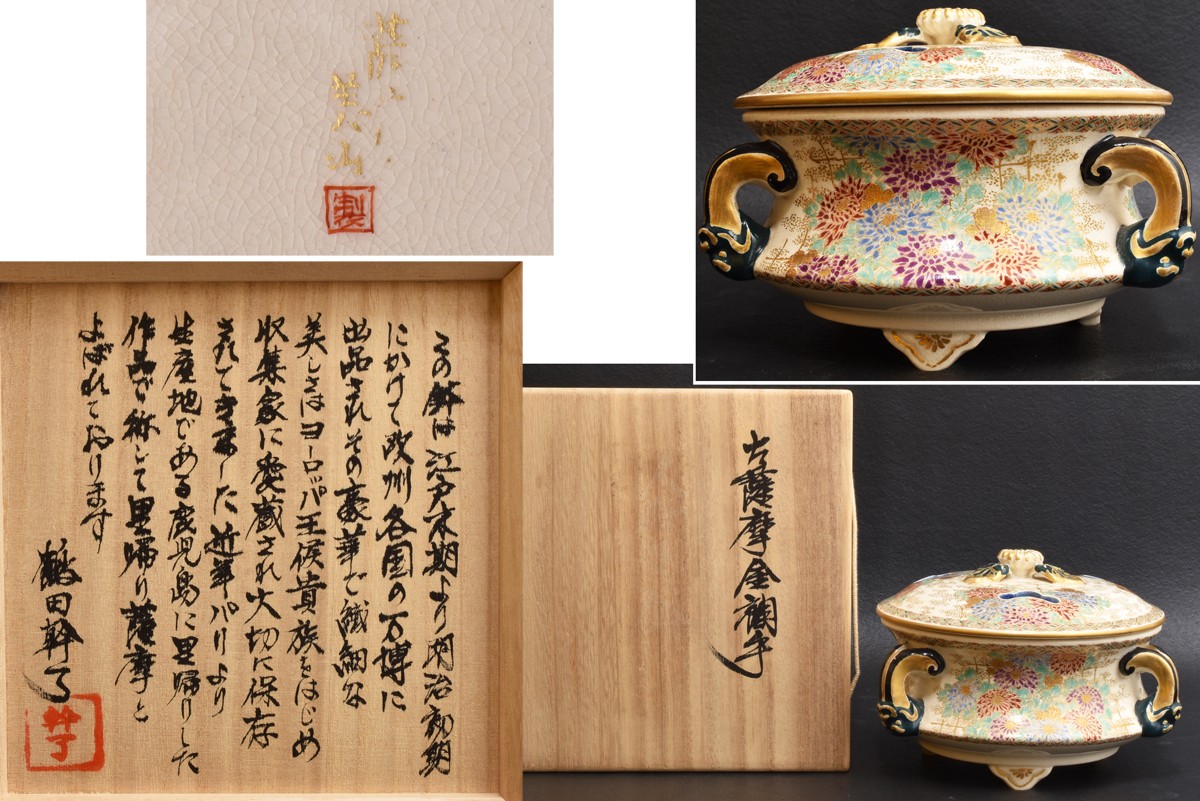 製
この鉢は江戸末期より明治初期
にかけて欧州各国の万博に
出品されその豪華で繊細な
美しさはヨーロッパ王侯貴族をはじめ
収集家に愛蔵され大切に保存
されてきました近年パリより
生産地である鹿児島に里帰りした
作品で称して里帰り薩摩と
よばれております
鶴田幹了
幹了
古薩摩金襴手